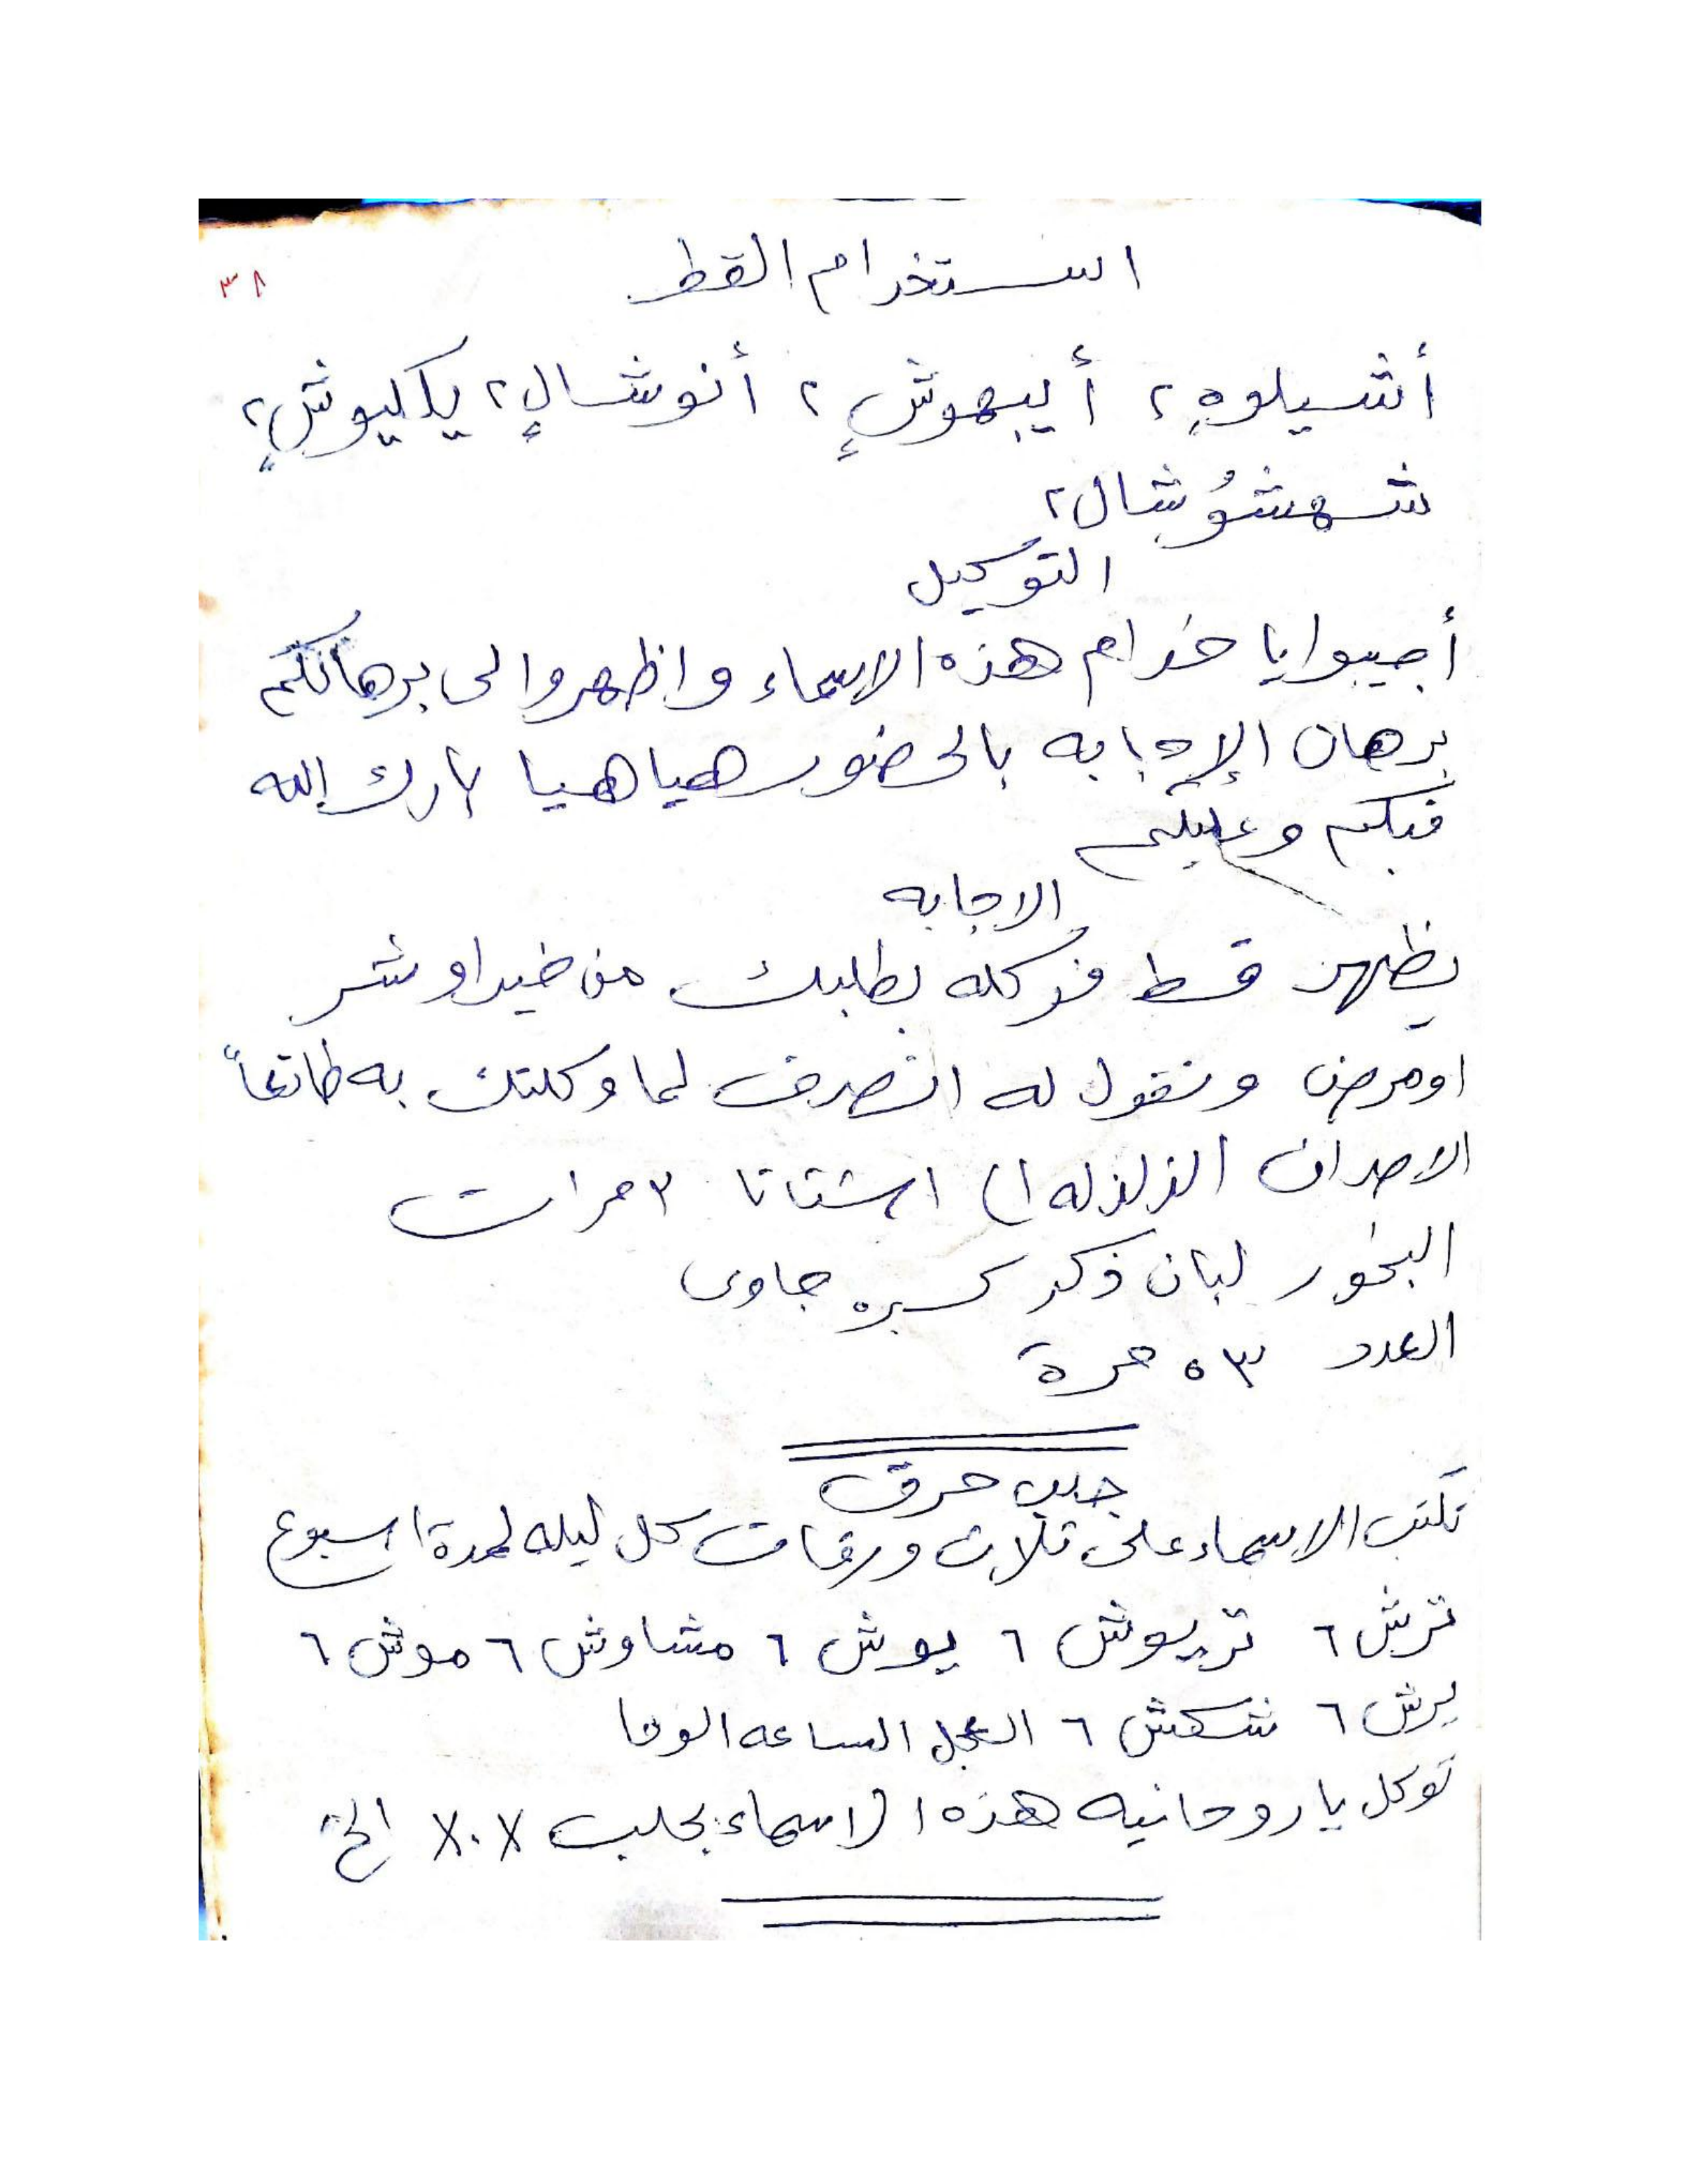 استخدام القط
٣٨
أشيلوهٍ ٢ أيبهوشٍ ٢ أنوشالٍ ٢ يكليوشٍ ٢
شهشوُشال ٢
التوكيل
أجيبوا يا خدام هذه الاسماء واظهروا لى برهانكم
برهان الإجابه بالحضور هيا هيا بارك الله
فيكم وعليكم
الاجابه
يظهر قط فوكله بطلبك من خير او شر
او مرض ونقول له انصرف لما وكلتك به طائعاً
الاصراف الزلزله الى اشتاتا ٣ مرات
البخور لبان ذكر كسبره جاوى
العدد ٥٣ مرة
جلب حرق
تكتب الاسماء على ثلاث ورقات كل ليله لمدة اسبوع
ترش ٦ تريوش ٦ يوش ٦ مشاوش ٦ موش ٦
يرش ٦ شكش ٦ العجل الساعه الوحا
توكل يا روحانيه هذه الاسماء بجلب X.X الخ